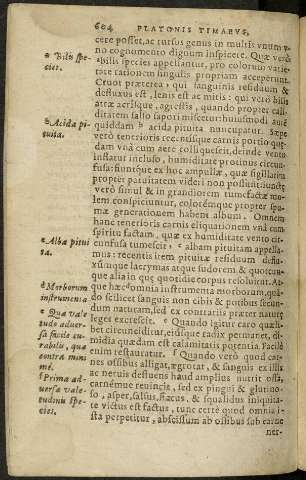 604 PLATONIS TIMAEVS,
cere posset, ac rursus genus in multis vnum v-
no cognomento dignum inspicere. Quæ verò
bilis species appellantur, pro colorum varie-
tate rationem singulis propriam acceperunt.
Cruor præterea, qui sanguinis residuum &
defluxus est, lenis est ac mitis: qui verò bilis
atræ acrisque, agrestis, quando propter cali-
ditatem salso sapori miscetur: huiusmodi
quiddam acida pituita nuncupatur. Sæpe
verò tenerioris recentisque carnis portio
dam vnà cum aere colliquescit, deinde vento
instatur incluso, humiditate protinus circun-
fusa: suntque ex hoc ampullæ, quæ sigillatim
propter paruitatem videri non possunt:
verò simul & in grandiorem tumefactæ mo-
lem conspiciuntur, colorémque propter spu-
mæ generationem habent album. Omnem
hanc tenerioris carnis eliquationem vnà cum
spiritu factam, quæ ex humiditate vento cir-
cunfusa tumescit: album pituitam appella-
mus: recentis item pituitæ residuum deflu-
xúsque lacrymas atque sudorem & quotcun-
que alia in que quotidie corpus resoluitur. At-
que hæc omnia instrumenta morborum,
do scilicet sanguis non cibis & potibus secun-
dum naturam, sed ex contrariis præter naturę
leges excrescit. Quando igitur caro quæli-
bet circunciditur, eiúsque radix permanet, di-
midia quædam est calamitatis potentia. Facilè
enim restauratur. Quando verò quod car-
nes ossibus alligat, ægrotat, & sanguis ex illis
ac neruis defluens haud amplius nutrit ossa,
carnémque reuincit, sed ex pingui & glutino-
so, asper, salsus, & squalidus iniquita-
te victus est factus, tunc certè quod omnia i-
sta perpetitur, abscissum ab ossibus sub carne
ner-
Bilis spe-
cies.
Acida pi-
tuita.
Alba pitui
ta.
Morborum
instrumenta
Quæ vale
tudo aduer-
sa facilè cu-
rabilis, quæ
contra mini
mè.
Prima ad-
uersæ vale-
tudinis spe-
cies.